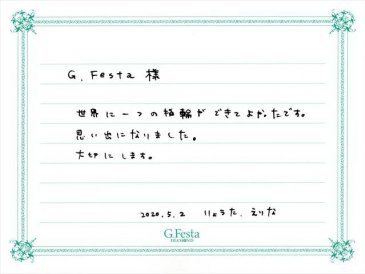 G. Festa 様
世界に一つの指輪ができてよかったです。
思い出になりました。
大切にします。
2020.5.2 りょうた、えりな
G.Festa
DIAMOND